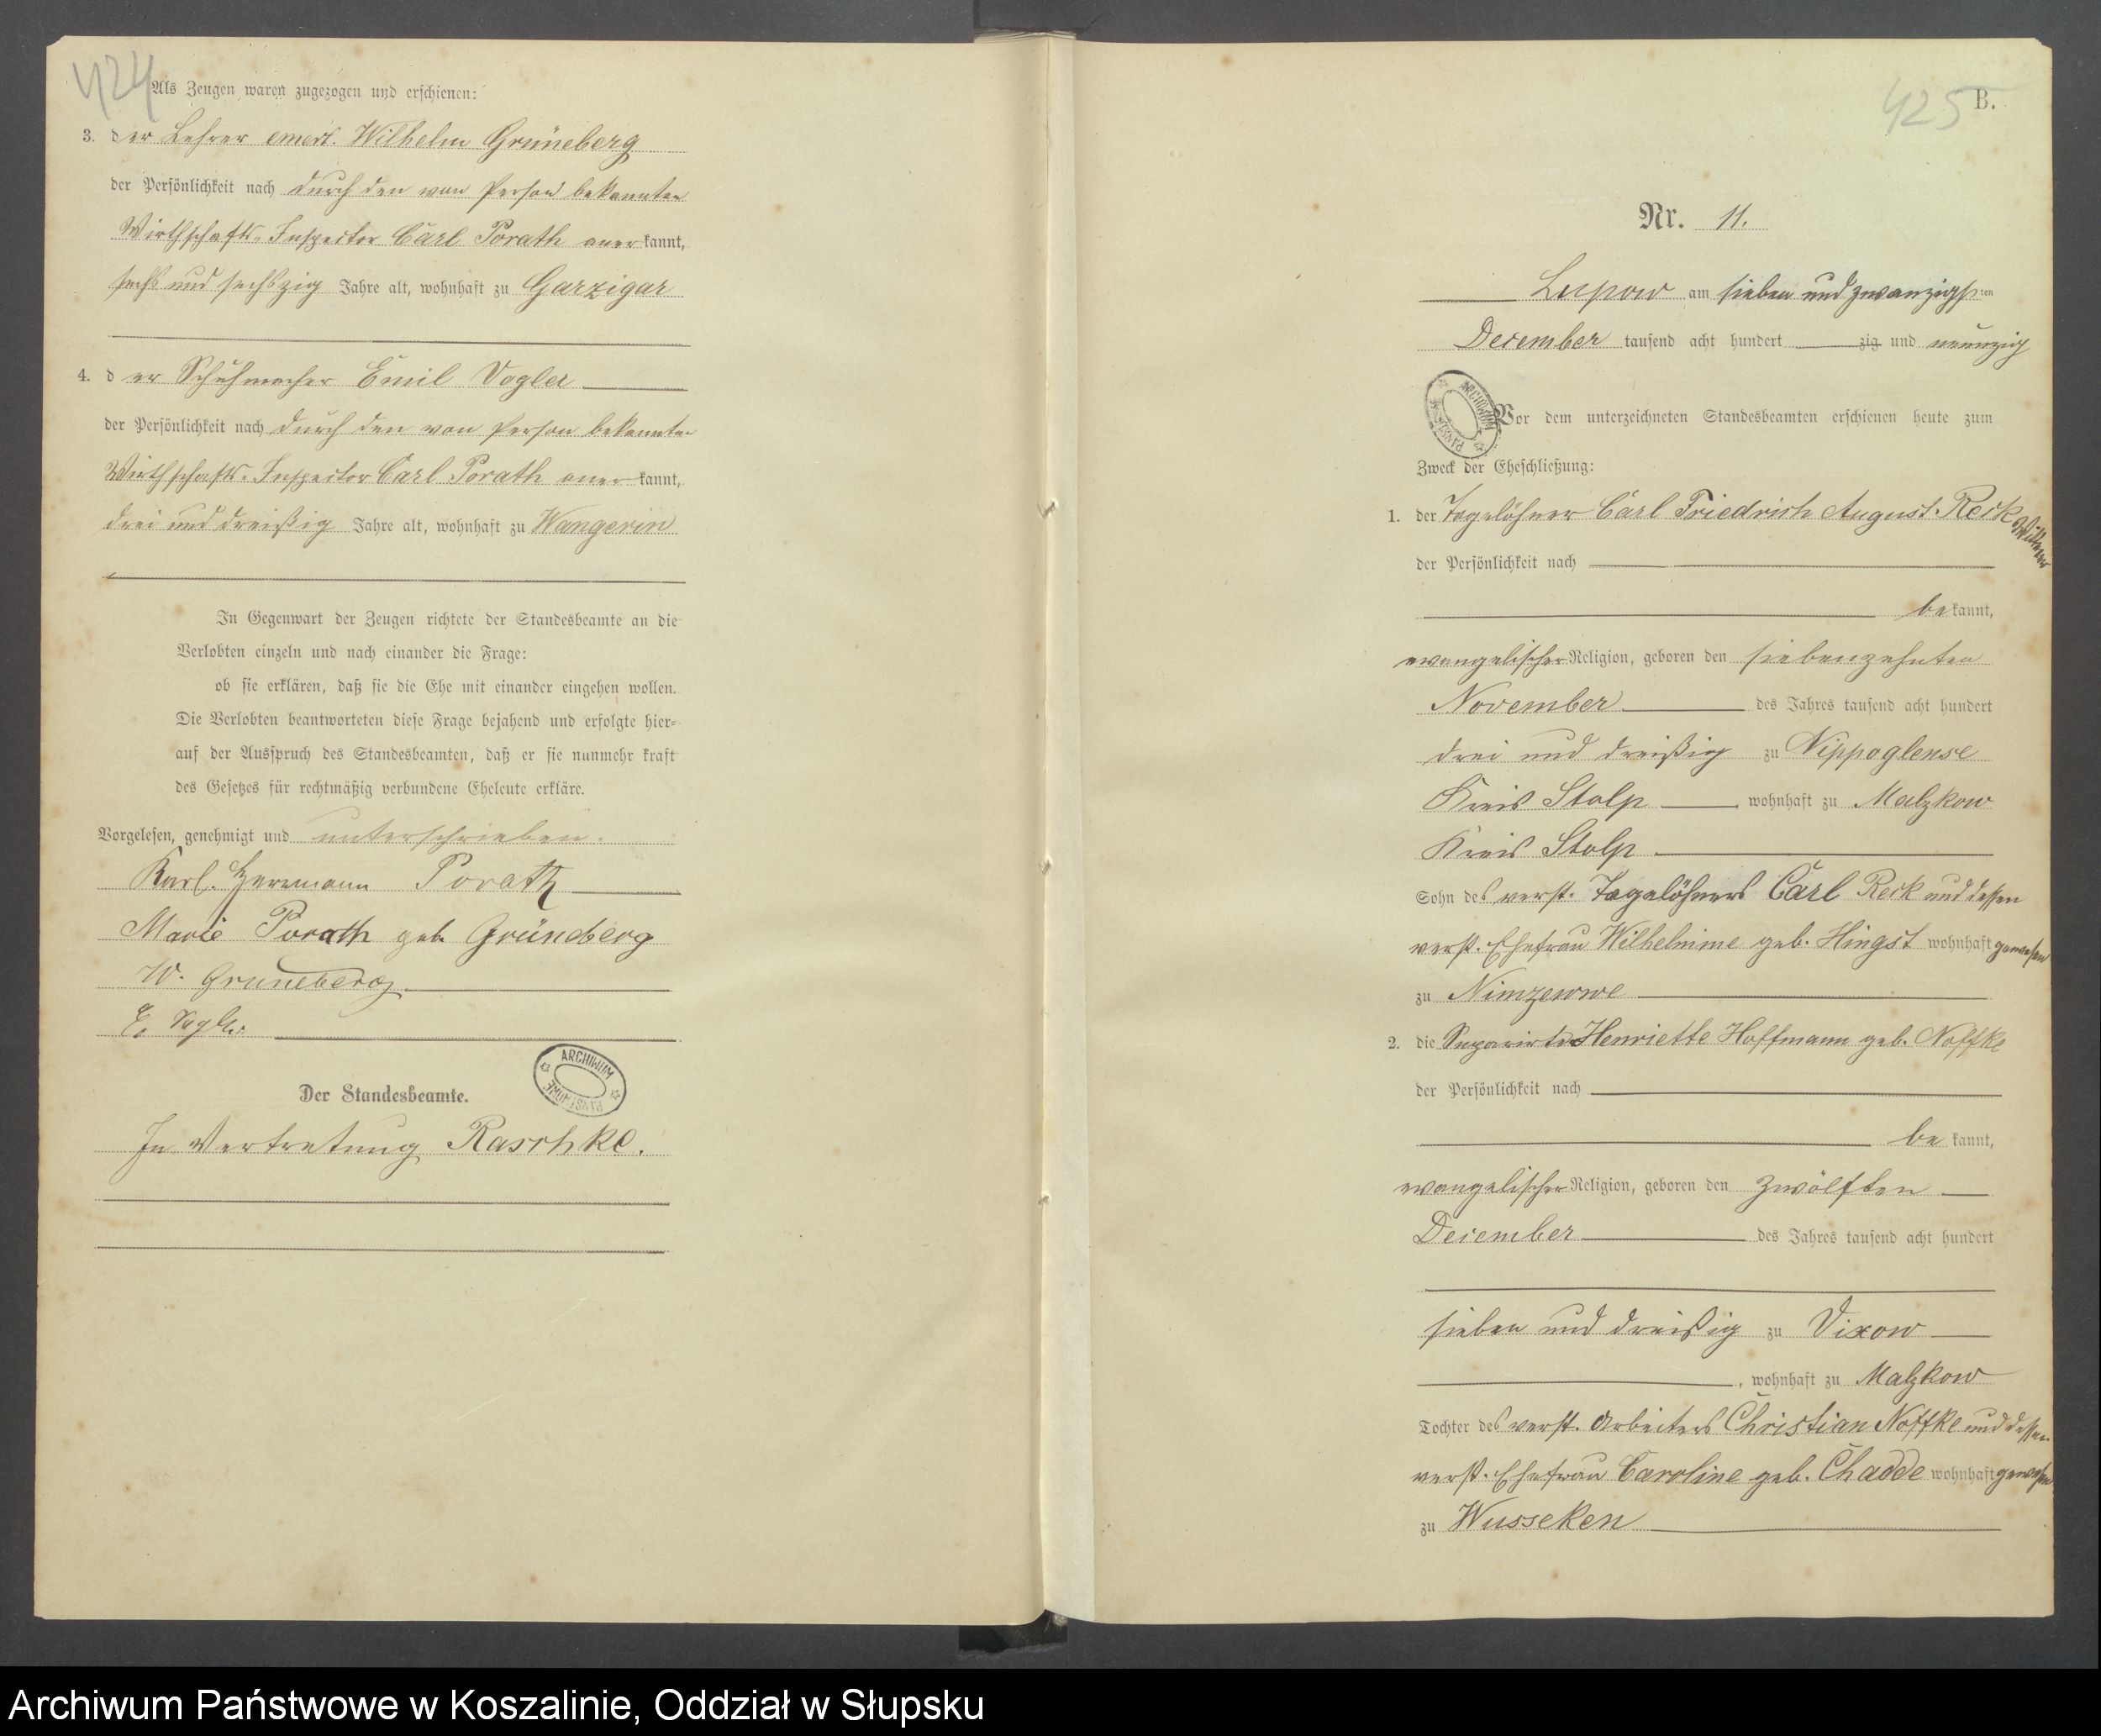 424
Als Zeugen waren zugezogen und erschienen:
3. der Lehrer emert. Wilhelm Grüneberg
der Persönlichkeit nach durch den von Person bekannten
Wirthschafts-Inspector Carl Porath anerkannt,
sechs und sechszig Jahre alt, wohnhaft zu Garzigar
4. der Schuhmacher Emil Vogler
der Persönlichkeit nach durch den von Person bekannten
Wirthschafts-Inspector Carl Porath anerkannt,
drei und dreißig Jahre alt, wohnhaft zu Wangerin
In Gegenwart der Zeugen richtete der Standesbeamte an die
Verlobten einzeln und nach einander die Frage:
ob sie erklären, daß sie die Ehe mit einander eingehen wollen.
Die Verlobten beantworteten diese Frage bejahend und erfolgte hier-
auf der Ausspruch des Standesbeamten, daß er sie nunmehr kraft
des Gesetzes für rechtmäßig verbundene Eheleute erkläre.
Vorgelesen, genehmigt und unterschrieben.
Karl Herrmann Porath
Marie Porath geb. Grüneberg
W. Gruneberg
E. Vogler
ARCHIWUM PAŃSTWOWE
Der Standesbeamte.
In Vertretung Raschke.
425 B.
Nr. 11.
Lupow am sieben und zwanzigsten
December tausend acht hundert zig und neunzig
ARCHIWUM PAŃSTWOWE
Vor dem unterzeichneten Standesbeamten erschienen heute zum
Zweck der Eheschließung:
1. der Tagelöhner Carl Friedrich August Reck Wittwer
der Persönlichkeit nach
bekannt,
evangelischer Religion, geboren den siebenzehnten
November des Jahres tausend acht hundert
drei und dreißig zu Nippoglense
Kreis Stolp, wohnhaft zu Malzkow
Kreis Stolp
Sohn des verst. Tagelöhners Carl Reck und dessen
verst. Ehefrau Wilhelmine geb. Hingst wohnhaft gewesen
zu Nimzewwe
2. die Separirte Henriette Hoffmann geb. Noffke
der Persönlichkeit nach
bekannt,
evangelischer Religion, geboren den zwölften
December des Jahres tausend acht hundert
sieben und dreißig zu Vixow
, wohnhaft zu Malzkow
Tochter des verst. Arbeiters Christian Noffke und dessen
verst. Ehefrau Caroline geb. Chadde wohnhaft gewesen
zu Wusseken
Archiwum Państwowe w Koszalinie, Oddział w Słupsku